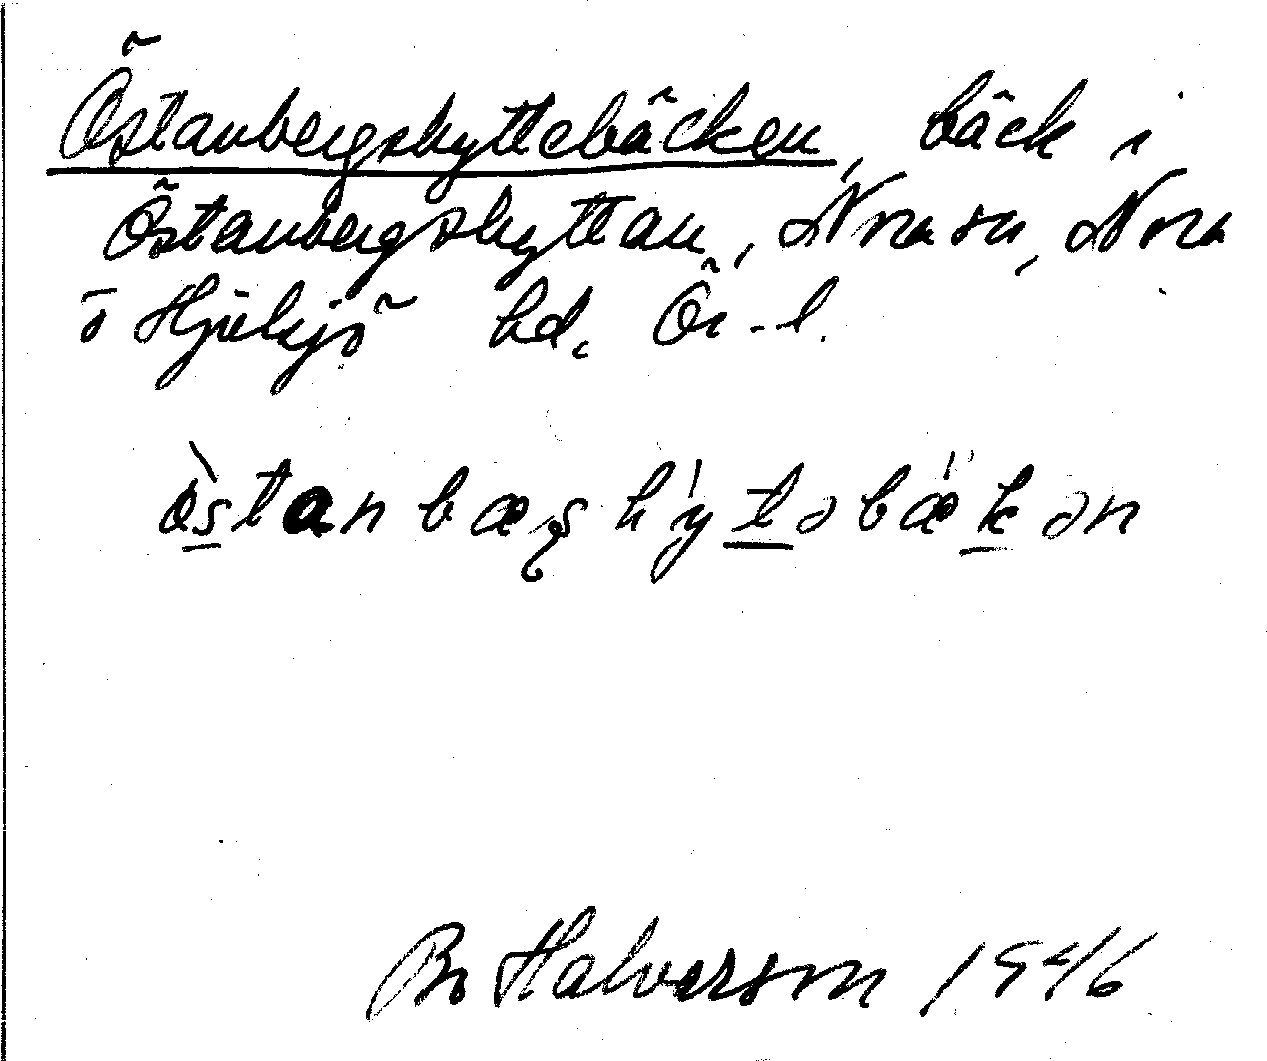 Östanbergshyttebäcken, bäck i
Östanbergshyttan, Nora sn, Nora
o Hjulsjö hd. Ör-l.
òstanbæʂhy̍təbæ̍kən
Bo Halvarson 1946